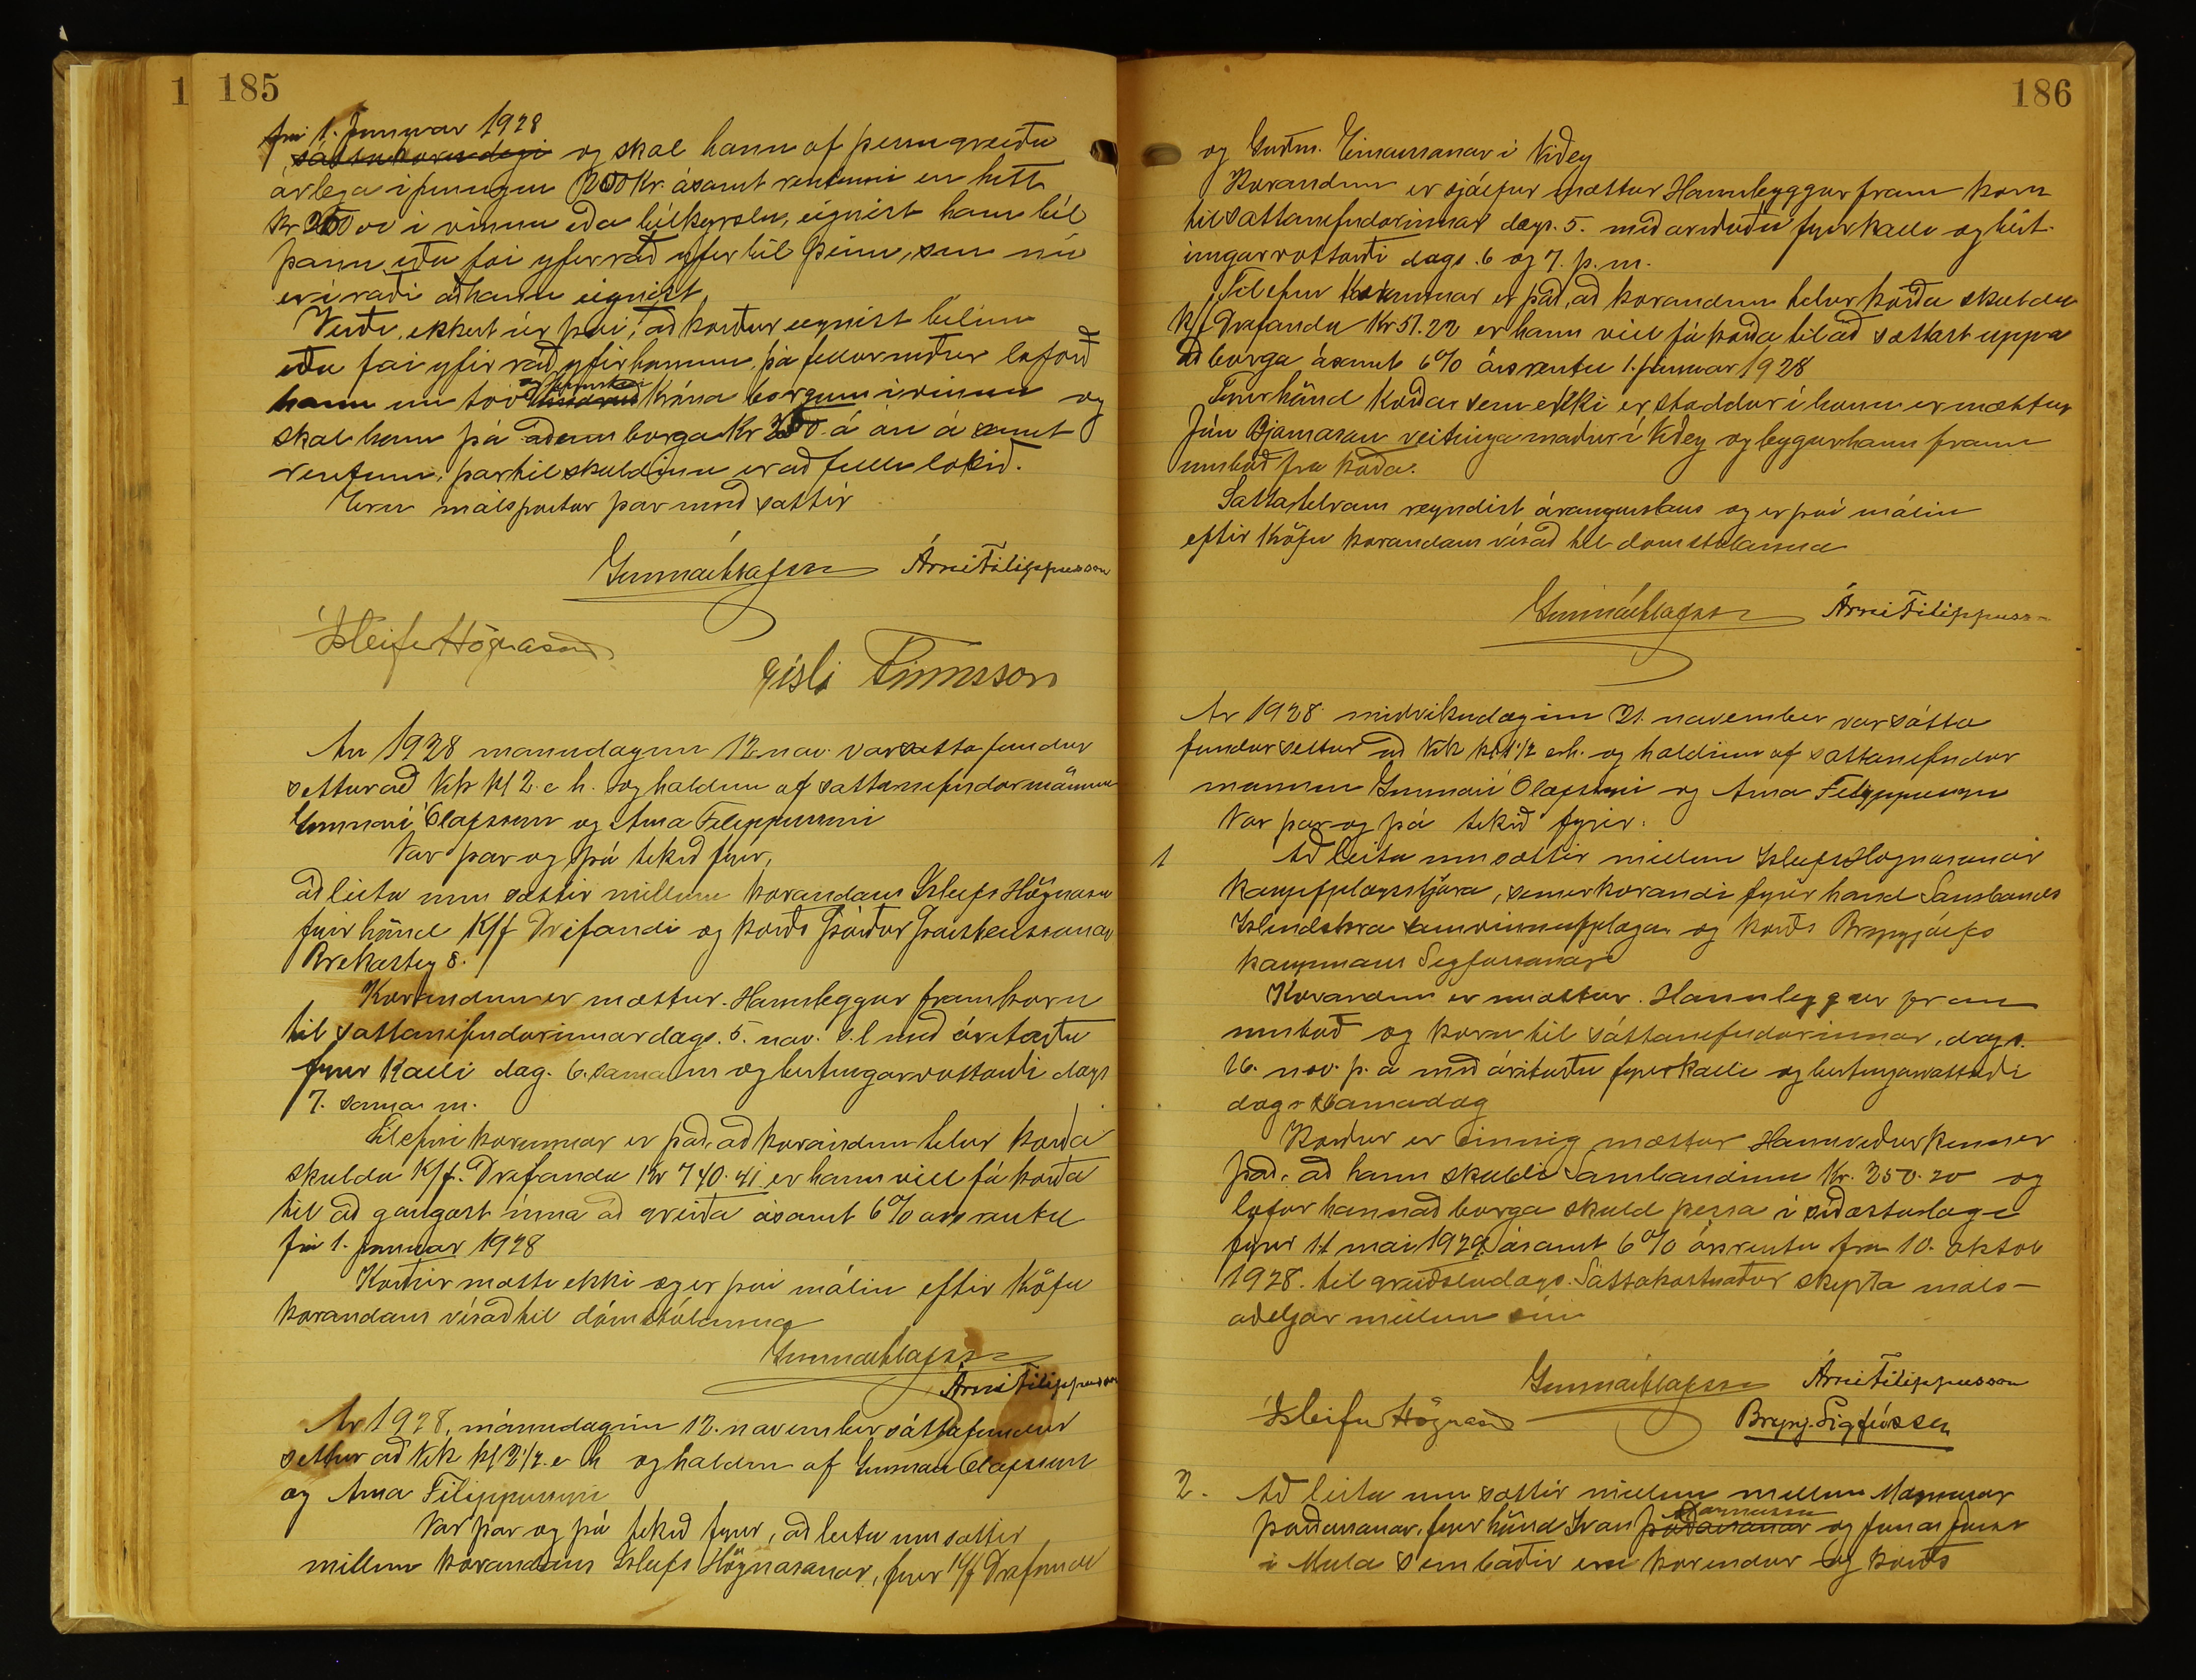 1 185
frá 1. Janúar 1928
sáttakærudegi og skal hann af þessu greiða
árlega í peningum 200 Kr. ásamt rentunni en hitt
í vinnu eða bílkeyrslu, eignist hann bíl
þann eða fái yfirráð yfir bíl þeim, sem nú
er í ráði að hann eignist
Verði ekkert úr því, að kærður eignist bílinn
eða fái yfirráð yfir honum, þá fellur niður loforð
hans um tvö hundruð króna borgun í vinnu og
skal hann þá aðeins borga Kr á ári ásamt
rentum, þar til skuldinni er að fullu lokið.
Eru málspartar þar með sáttir
Gunnar Ólafsson Árni Filippusson
Ísleifur Högnason
Gísli Finnsson
Ár 1928 mánudaginn 12. nóv. var sáttafundur
settur að Vík kl 2 e.h. og haldinn af sáttanefndarmönnum
Gunnari Ólafssyni og Árna Filippussyni
Var þar og þá tekið fyrir,
að leita um sættir millum kærandans Ísleifs Högnasonar
fyrir hönd K/f Drífandi og kærðs Þórðar Þorsteinssonar
Brekastíg 8.
Kærandinn er mættur. Hann leggur fram kæru
til sáttanefndarinnar dags. 5. nóv. s.l með áritaðu
fyrirkalli dag. 6. sama m og birtingarvottorði dags
7. sama m.
Tilefni kærunnar er það, að kærandinn telur kærða
skulda K/f. Drífanda Kr 740.41 er hann vill fá kærða
til að gangast inná að greiða ásamt 6% ársrentu
frá 1. janúar 1928
Kærður mætti ekki og er því málinu eftir kröfu
kærandans vísað til dómstólanna
Gunnar Ólafsson
Árni Filippusson
Ár 1928, mánudaginn 12. nóvember sáttafundur
settur að Vík kl 2 1/2 e h og haldinn af Gunnari Ólafssyni
og Árna Filippussyni
Var þar og þá tekið fyrir, að leita um sættir
millum kærandans Ísleifs Högnasonar, fyrir K/f Drífandi
186
og Guðm. Einarssonar í Viðey
Kærandinn er sjálfur mættur Hann leggur fram kæru
til sáttanefndarinnar dags. 5. með árituðu fyrirkalli og birt-
ingarvottorði dags. 6 og 7. þ. m.
Tilefni kærunnar er það, að kærandinn telur kærða skulda
K/f Drífanda Kr 51.22 er hann vill fá kærða til að sættast uppá
að borga ásamt 6% ársrentu 1. janúar 1928
Fyrir hönd kærða sem ekki er staddur í bænum er mættur
Jón Bjarnason veitingamaður í Viðey og leggur hann fram
umboð frá kærða.
Sáttatilraun reyndist árangurslaus og er því málinu
eftir kröfu kærandans vísað til dómstólanna
Gunnar Ólafsson Árni Filippusson
Ár 1928 miðvikudaginn 21. nóvember var sátta
fundur settur að Vík kl 1 1/2 e.h. og haldinn af sáttanefndar
mönnum Gunnari Ólafssyni og Árna Filippussyni
Var þar og þá tekið fyrir:
1 Að leita um sættir millum Ísleifs Högnasonar
kaupfjelagsstjóra, sem er kærandi fyrir hönd Sambands
Íslendskra samvinnufjelaga og kærðs Brynjólfs
kaupmanns Sigfússonar
Kærandinn er mættur. Hann leggur fram
umboð og kæru til sáttanefndarinnar, dags.
16. nóv. þ. á með árituðu fyrirkalli og birtingarvottorði
dags samadag
Kærður er einnig mættur Hann viðurkennir
það, að hann skuldi Sambandinu Kr. 350.20 og
lofar hann að borga skuld þessa í síðastalagi
fyrir 11 maí 1929 ásamt 6% ársrentu frá 10. októb
1928. til greiðsludags. Sáttakostnaður skipta máls-
aðiljar millum sín
Gunnar Ólafsson Árni Filippusson
Ísleifur Högnason Brynj. Sigfússon
2. Að leita um sættir millum millum Magnúsar
Þórðarsonar, fyrir hönd Ívars Þórðarsonar og
í Múla sem báðir eru kærendur og kærðs